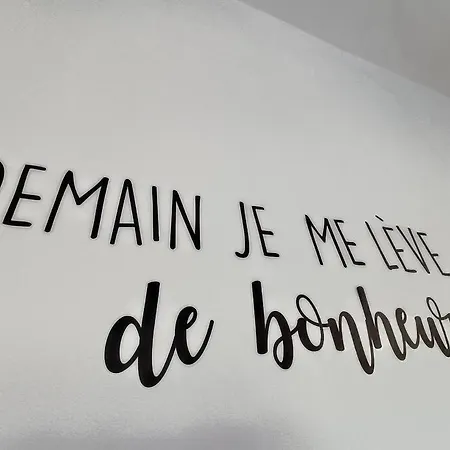 DEMAIN JE ME LÈVE
de bonheur